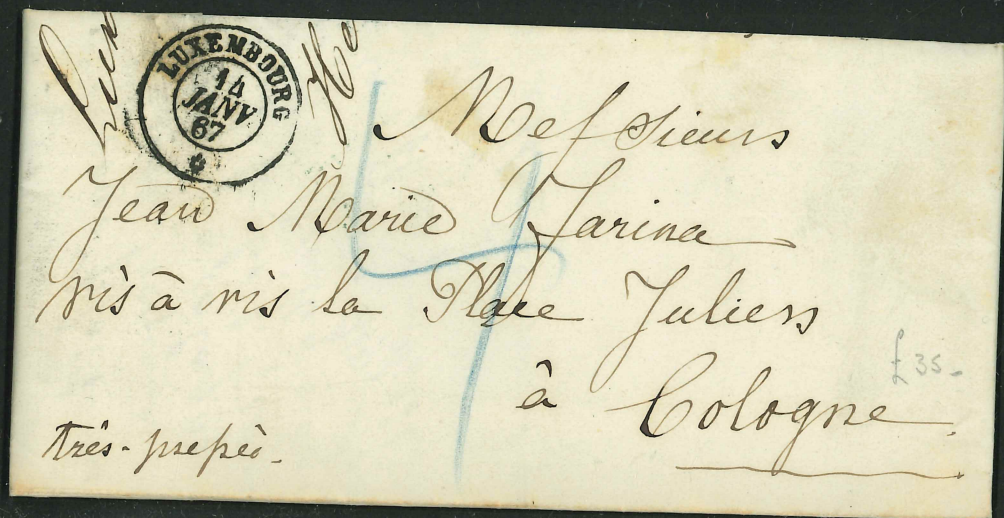 LUXEMBOURG
14
JANV
67
Messieurs
Jean Marie Farina
vis à vis la Place Juliers
à Cologne.
très-
£35-
4